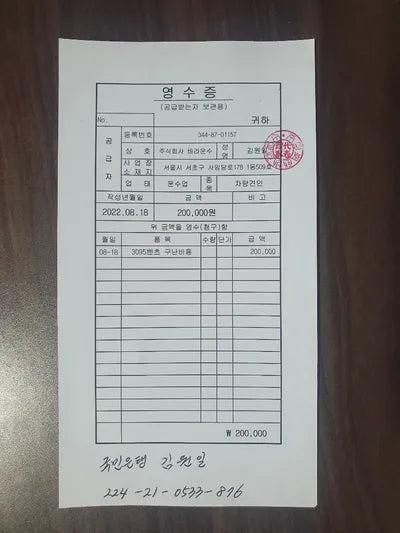 영 수 증
(공급받는자 보관용)
No. 귀하
공급자
등록번호 344-87-01157
상 호 주식회사 바라운수 성명 김원일
사업장소재지 서울시 서초구 사임당로178 1동509호
업 태 운수업 종목 차량견인
작성년월일 금 액 비 고
2022.08.18 200,000원
위 금액을 영수(청구)함
월일 품 목 수량 단가 금 액
08-18 3095벤츠 구난비용 200,000
₩ 200,000
국민은행 김원일
224-21-0533-876